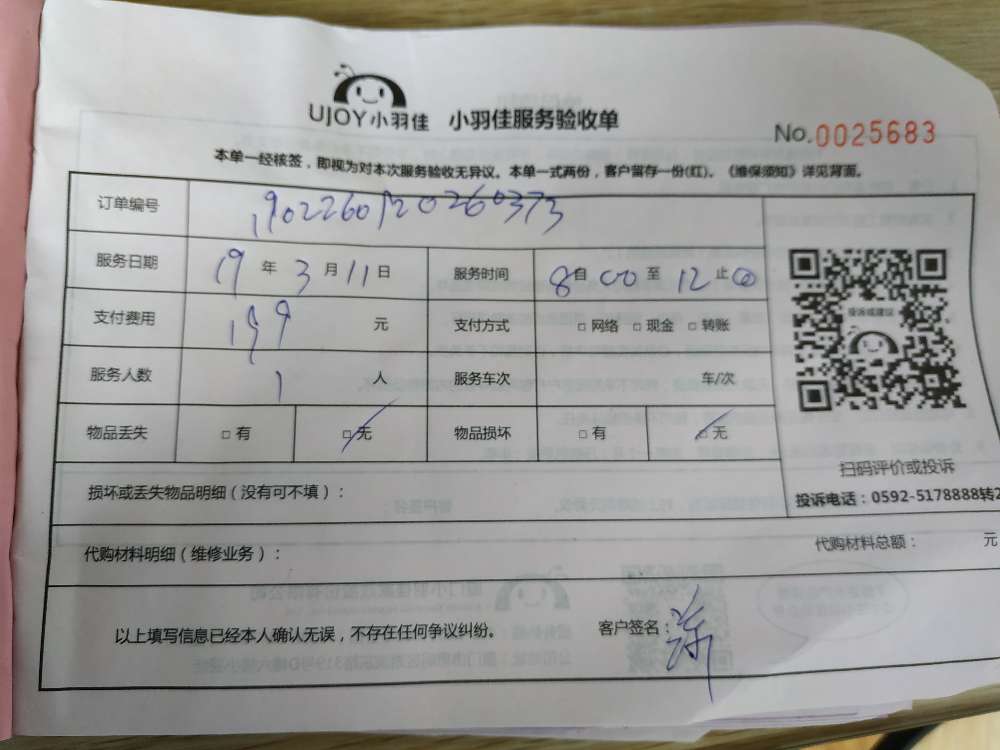 UJOY小羽佳 小羽佳服务验收单
No.0025683
本单一经核签，即视为对本次服务验收无异议。本单一式两份，客户留存一份(红)。《维保须知》详见背面。
订单编号 19022609120260373
服务日期 19 年 3 月 11 日 服务时间 8 自 00 至 12 止 00
支付费用 199 元 支付方式 □ 网络 □ 现金 □ 转账
服务人数 1 人 服务车次 车/次
物品丢失 □ 有 □ 无 物品损坏 □ 有 □ 无
投诉或建议
扫码评价或投诉
投诉电话：0592-5178888转2
损坏或丢失物品明细（没有可不填）：
代购材料明细（维修业务）： 代购材料总额： 元
以上填写信息已经本人确认无误，不存在任何争议纠纷。 客户签名：